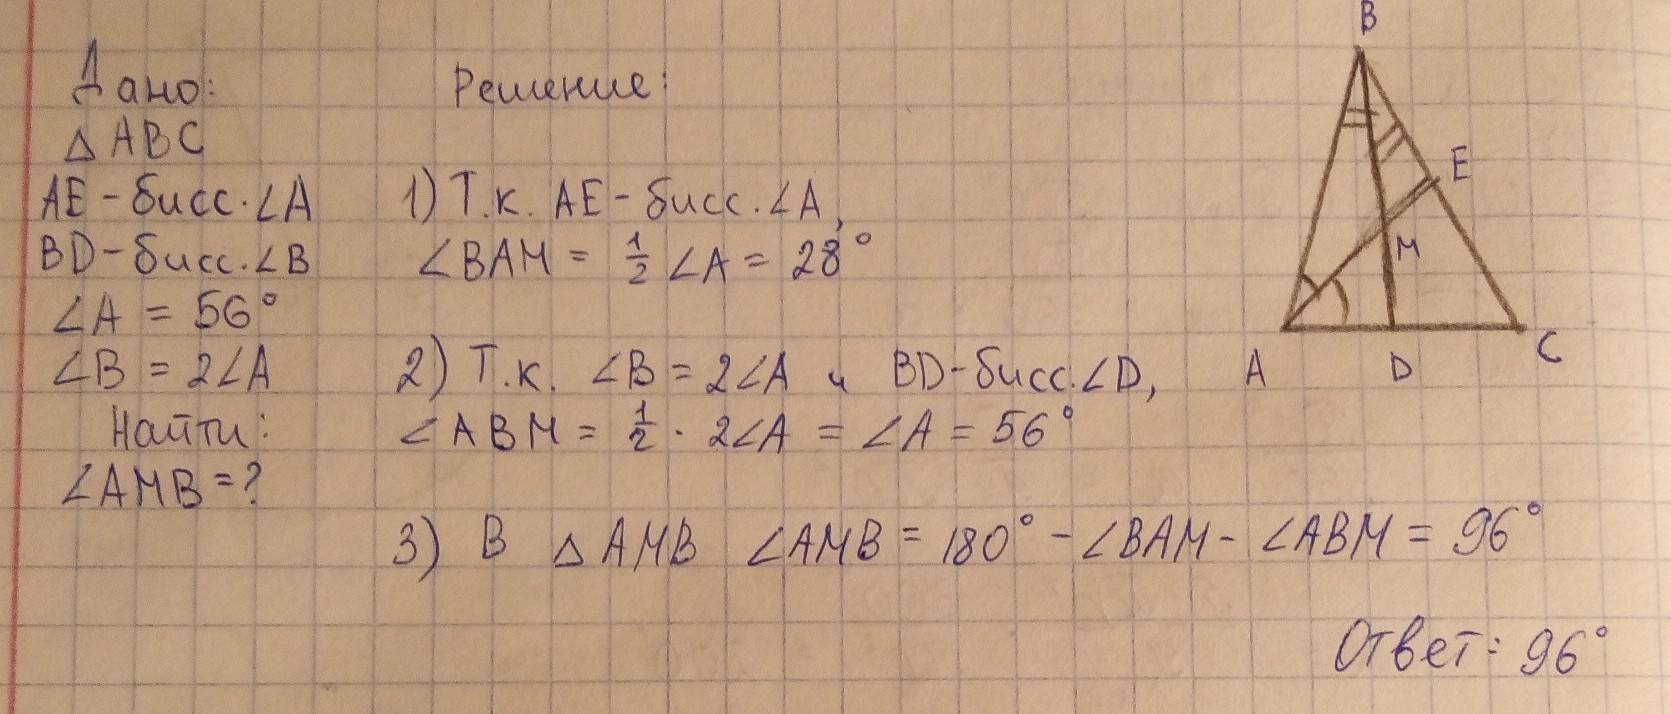 Дано:
△ABC
AE - бисс. ∠A
BD - бисс. ∠B
∠A = 56°
∠B = 2∠A
Найти:
∠AMB = ?
Решение:
1) Т.к. AE - бисс. ∠A,
∠BAM = 1/2 ∠A = 28°
2) Т.к. ∠B = 2∠A и BD - бисс. ∠D,
∠ABM = 1/2 · 2∠A = ∠A = 56°
3) В △AMB ∠AMB = 180° - ∠BAM - ∠ABM = 96°
Ответ: 96°
B
E
M
A
D
C